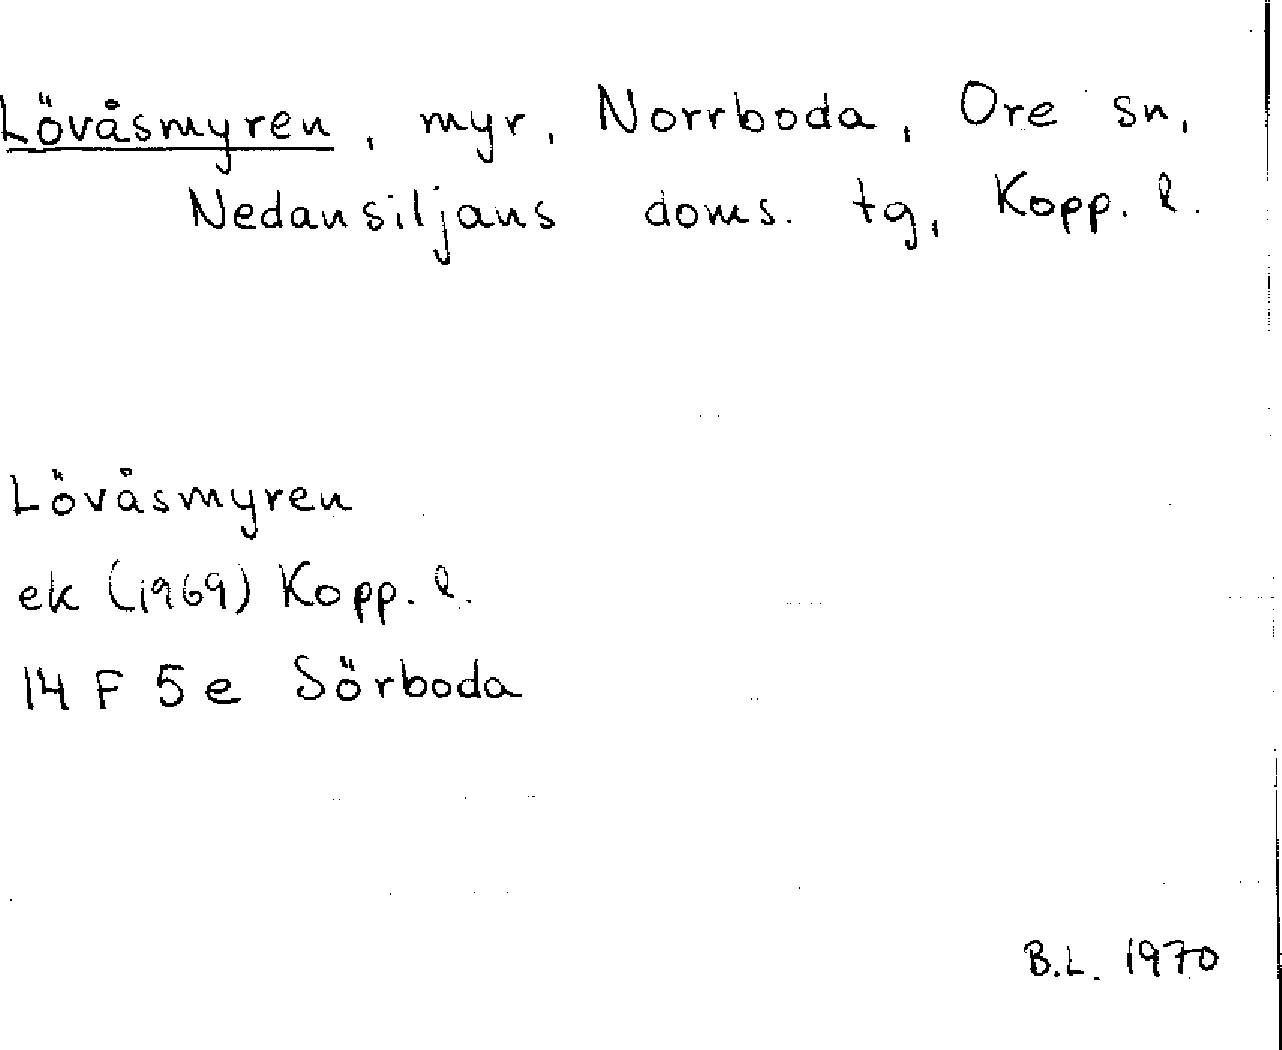 Lövåsmyren, myr, Norrboda, Ore sn,
Nedansiljans doms. tg, Kopp. l.
Lövåsmyren
ek (1969) Kopp. l.
14 F 5 e Sörboda
B.L. 1970